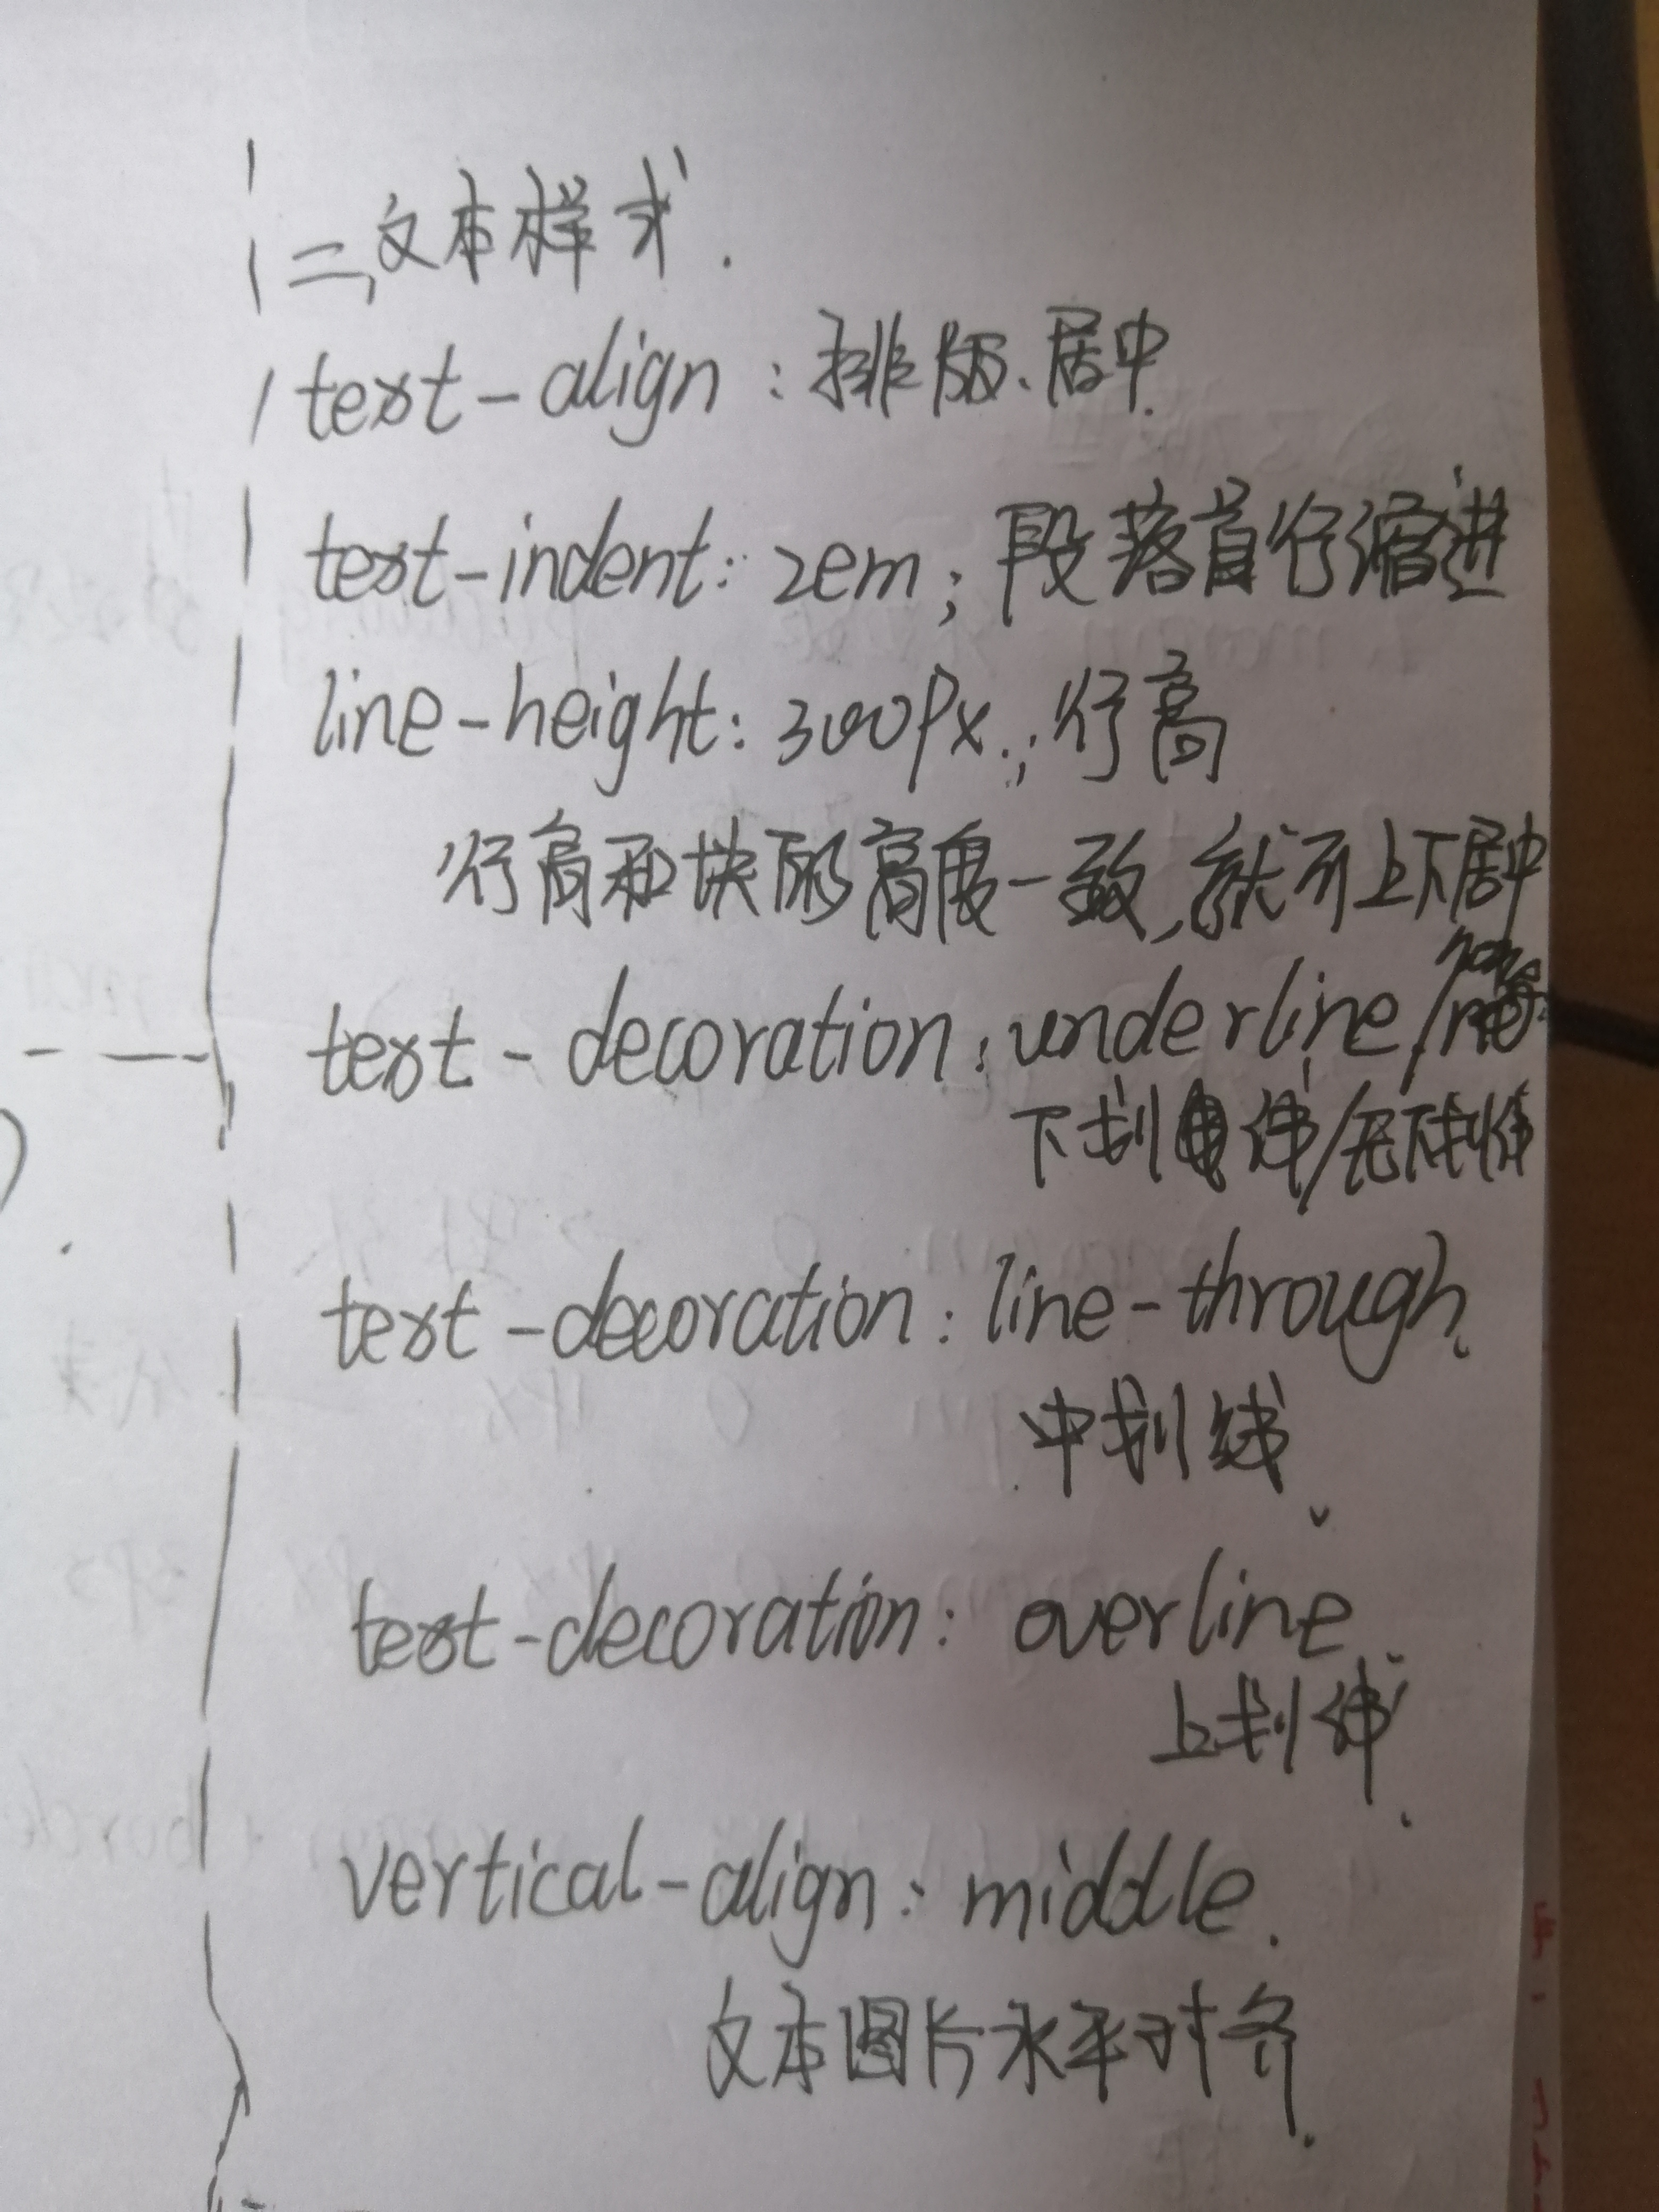 二、文本样式.
text-align:排版、居中.
text-indent:2em;段落首行缩进
line-height:300px.;行高
行高和块的高度一致,就可上下居中
none
text-decoration:underline/
下划线/无下划线
text-decoration:line-through.
中划线
text-decoration:overline.
上划线.
vertical-align:middle.
文本图片水平对齐.